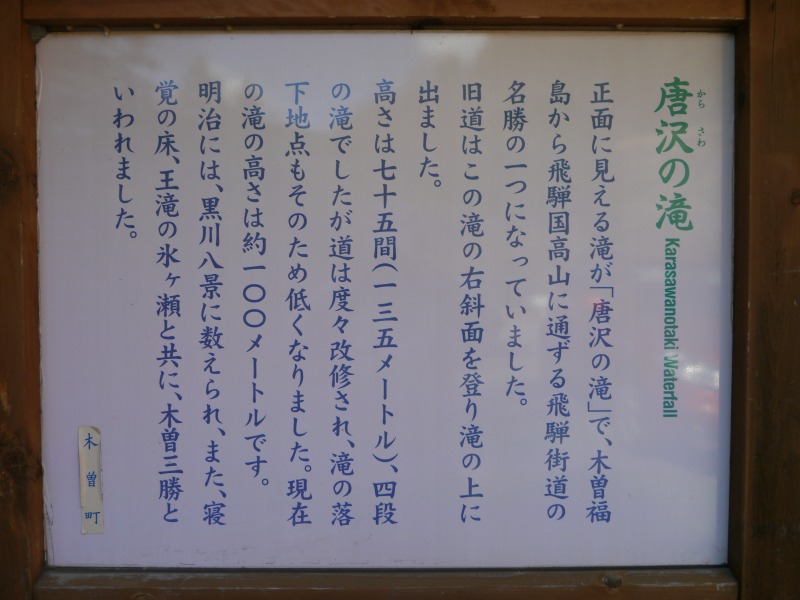 唐沢の滝 Karasawanotaki Waterfall
から さわ
正面に見える滝が「唐沢の滝」で、木曽福
島から飛騨国高山に通ずる飛騨街道の
名勝の一つになっていました。
旧道はこの滝の右斜面を登り滝の上に
出ました。
高さは七十五間(一三五メートル)、四段
の滝でしたが道は度々改修され、滝の落
下地点もそのため低くなりました。現在
の滝の高さは約一〇〇メートルです。
明治には、黒川八景に数えられ、また、寝
覚の床、王滝の氷ヶ瀬と共に、木曽三勝と
いわれました。
木曽町